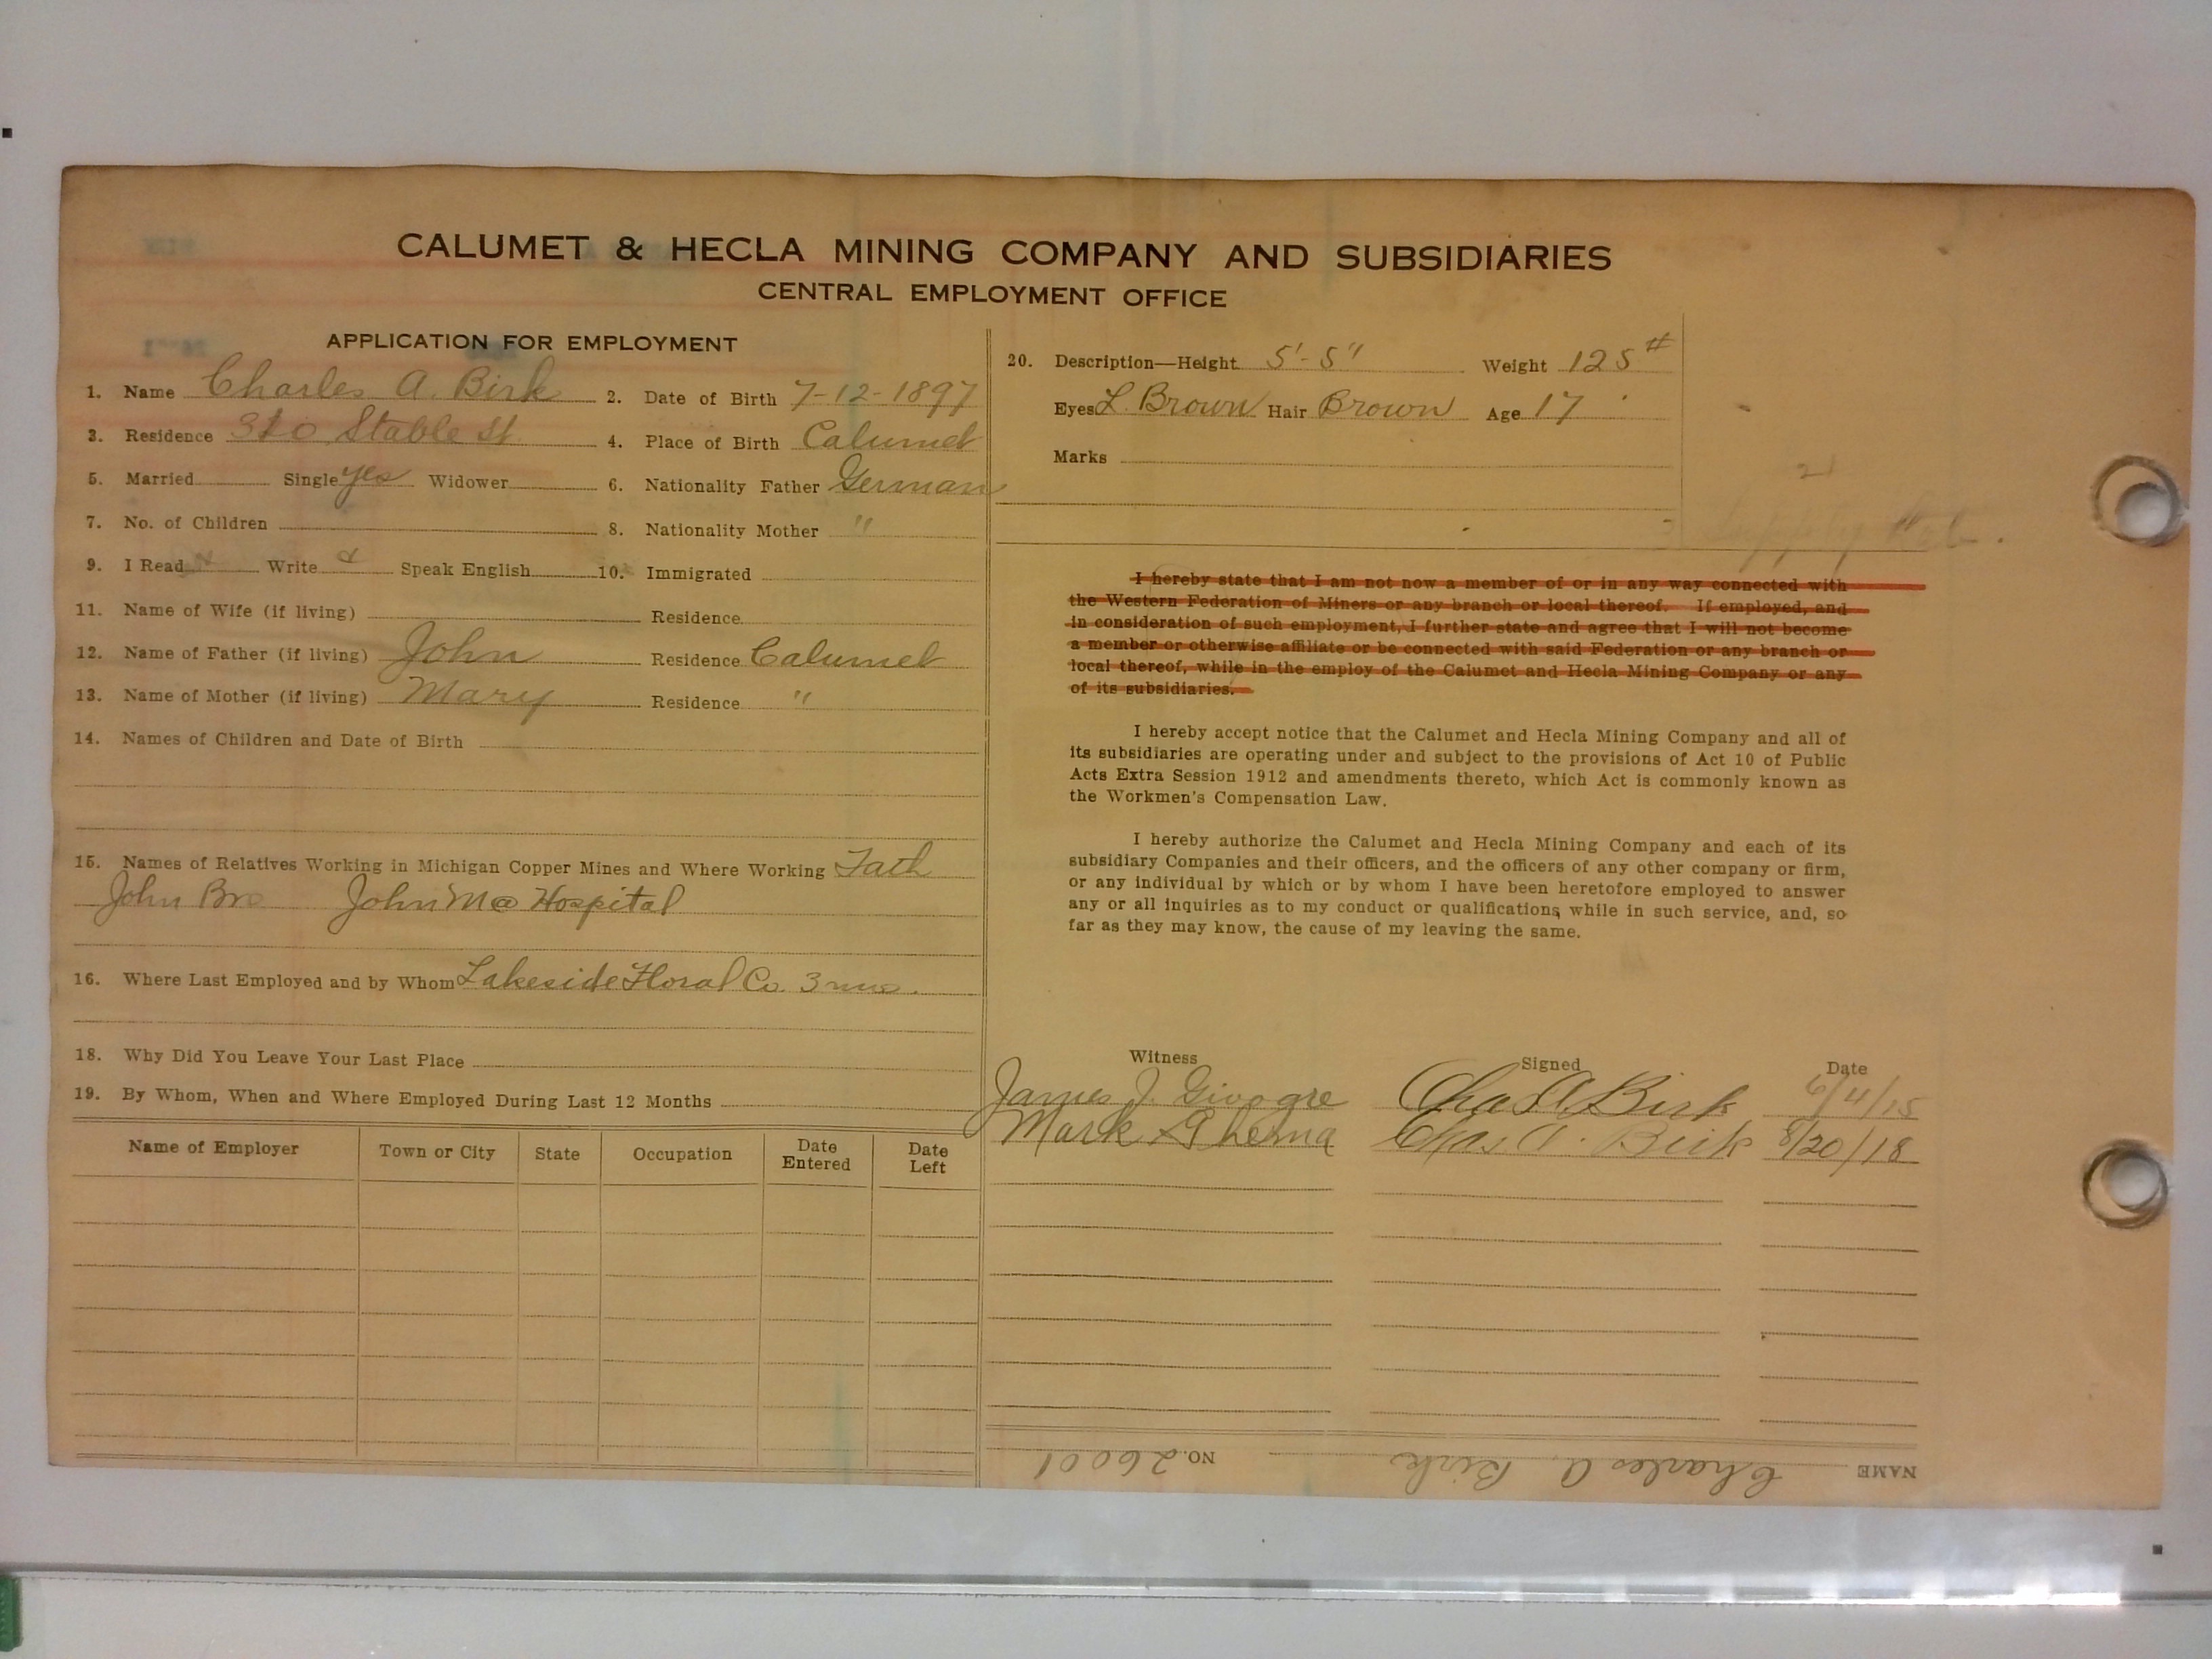 CALUMET & HECLA MINING COMPANY AND SUBSIDIARIES
CENTRAL EMPLOYMENT OFFICE
APPLICATION FOR EMPLOYMENT
1. Name Charles A. Birk 2. Date of Birth 7-12-1897
3. Residence Stable St 4. Place of Birth Calumet
5. Married Single yes Widower 6. Nationality Father German
7. No. of Children 8. Nationality Mother "
9. I Read Write Speak English 10. Immigrated
11. Name of Wife (if living) Residence
12. Name of Father (if living) John Residence Calumet
13. Name of Mother (if living) Mary Residence "
14. Names of Children and Date of Birth
15. Names of Relatives Working in Michigan Copper Mines and Where Working Fath
John Bro John Hospital
16. Where Last Employed and by Whom Lakeside Floral Co. 3 mos.
18. Why Did You Leave Your Last Place
19. By Whom, When and Where Employed During Last 12 Months
Name of Employer Town or City State Occupation Date Entered Date Left
20. Description—Height 5'-5" Weight 125#
Eyes L. Brown Hair Brown Age 17
Marks
21
I hereby state that I am not now a member of or in any way connected with
the Western Federation of Miners or any branch or local thereof. If employed, and
in consideration of such employment, I further state and agree that I will not become
a member or otherwise affiliate or be connected with said Federation or any branch or
local thereof, while in the employ of the Calumet and Hecla Mining Company or any
of its subsidiaries.
I hereby accept notice that the Calumet and Hecla Mining Company and all of
its subsidiaries are operating under and subject to the provisions of Act 10 of Public
Acts Extra Session 1912 and amendments thereto, which Act is commonly known as
the Workmen's Compensation Law.
I hereby authorize the Calumet and Hecla Mining Company and each of its
subsidiary Companies and their officers, and the officers of any other company or firm,
or any individual by which or by whom I have been heretofore employed to answer
any or all inquiries as to my conduct or qualifications while in such service, and, so
far as they may know, the cause of my leaving the same.
Witness Signed Date
James J. Chas A. Birk 6/4/15
Mark Chas. A. Birk 8/20/18
NAME Charles A. Birk NO. 26001